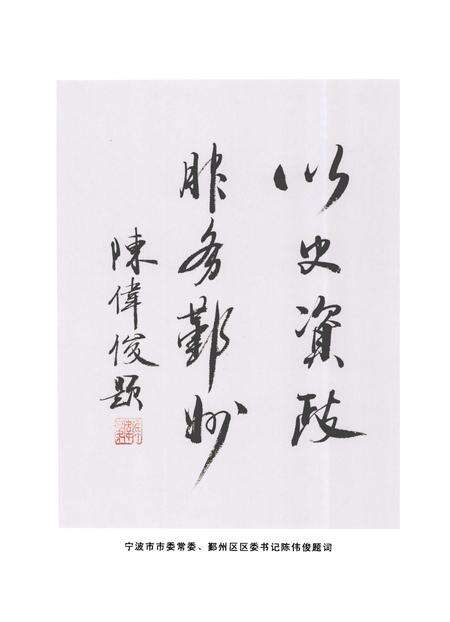 以史资政
服务鄞州
陳偉俊题
宁波市市委常委、鄞州区区委书记陈伟俊题词